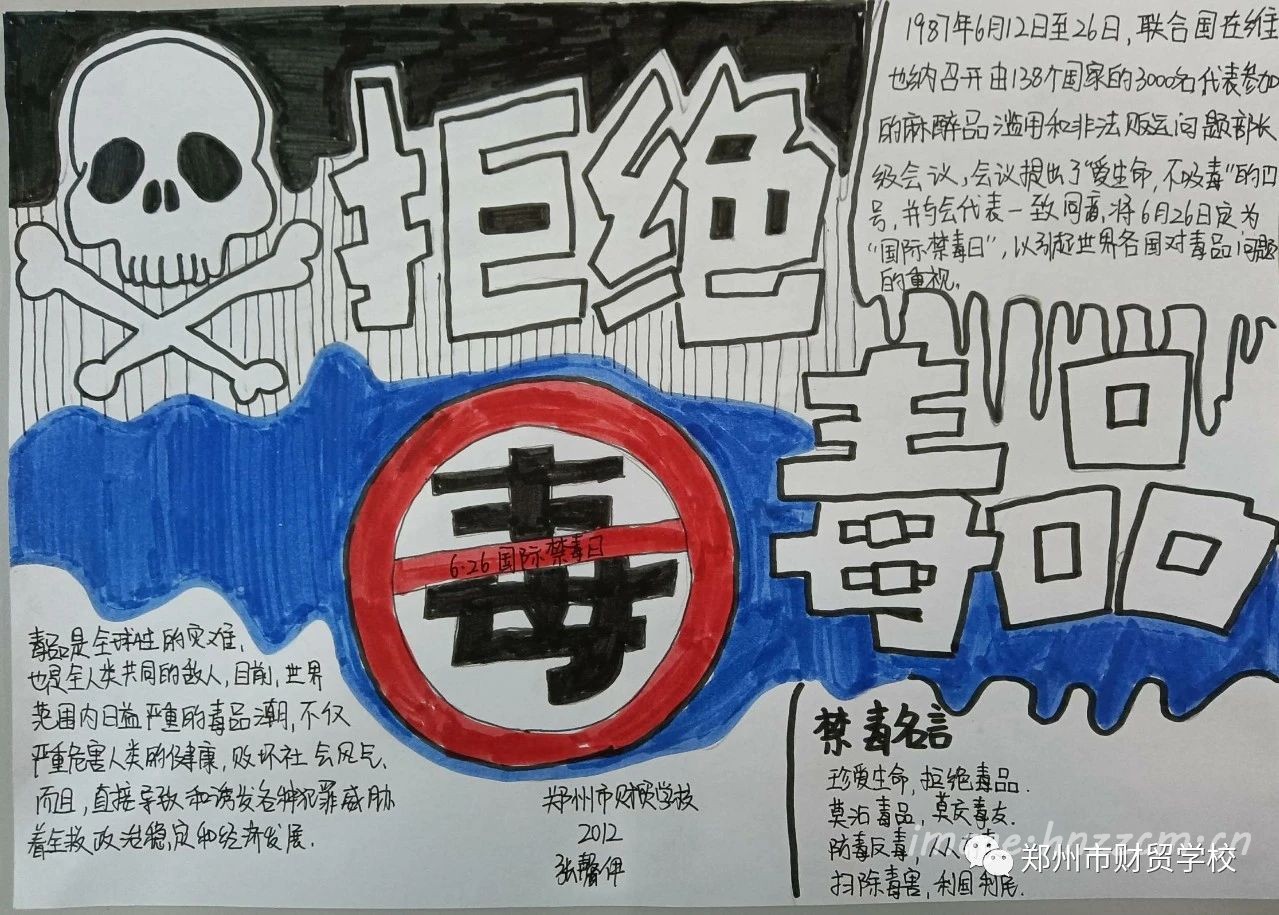 拒绝
毒品
1987年6月12日至26日，联合国在维
也纳召开由138个国家的3000名代表参加
的麻醉品滥用和非法贩运问题部长
级会议，会议提出了“爱生命，不吸毒”的口
号，并与会代表一致同意，将6月26日定为
“国际禁毒日”，以引起世界各国对毒品问题
的重视。
毒
6·26国际禁毒日
毒品是全球性的灾难，
也是全人类共同的敌人，目前，世界
范围内日益严重的毒品潮，不仅
严重危害人类的健康，败坏社会风气，
而且，直接导致和诱发各种犯罪威胁
着全球政治稳定和经济发展.
郑州市财贸学校
2012
张馨伊
禁毒名言
珍爱生命，拒绝毒品.
莫沾毒品，莫交毒友.
防毒反毒，人人
扫除毒害，利国利民.
郑州市财贸学校